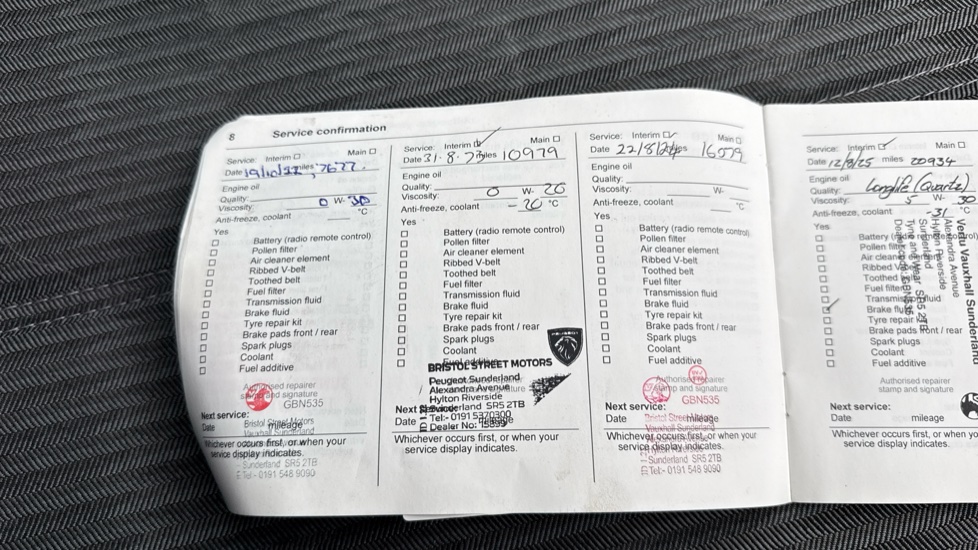 8 Service confirmation
Service: Interim Main
Date 19/10/22 miles 7677
Engine oil
Quality:
Viscosity: 0 W- 30
Anti-freeze, coolant °C
Yes
Battery (radio remote control)
Pollen filter
Air cleaner element
Ribbed V-belt
Toothed belt
Fuel filter
Transmission fluid
Brake fluid
Tyre repair kit
Brake pads front / rear
Spark plugs
Coolant
Fuel additive
Authorised repairer
stamp and signature
GBN535
Next service:
Date mileage
Bristol Street Motors
Vauxhall Sunderland
Whichever occurs first, or when your
service display indicates.
Sunderland SR5 2TB
Tel:- 0191 548 9090
Service: Interim ✓ Main
Date 31-8-23 miles 10979
Engine oil
Quality:
Viscosity: 0 W- 20
Anti-freeze, coolant -20 °C
Yes
Battery (radio remote control)
Pollen filter
Air cleaner element
Ribbed V-belt
Toothed belt
Fuel filter
Transmission fluid
Brake fluid
Tyre repair kit
Brake pads front / rear
Spark plugs
Coolant
Fuel additive
BRISTOL STREET MOTORS
Peugeot Sunderland
Alexandra Avenue
Hylton Riverside
Sunderland SR5 2TB
Tel:- 0191 5370300
Dealer No:
signature
Next
Date mileage
Whichever occurs first, or when your
service display indicates.
Service: Interim ✓ Main
Date 22/8/24 miles 16579
Engine oil
Quality:
Viscosity: W-
Anti-freeze, coolant °C
Yes
Battery (radio remote control)
Pollen filter
Air cleaner element
Ribbed V-belt
Toothed belt
Fuel filter
Transmission fluid
Brake fluid
Tyre repair kit
Brake pads front / rear
Spark plugs
Coolant
Fuel additive
Authorised repairer
stamp and signature
GBN535
Next service:
Date mileage
Bristol Street Motors
Vauxhall Sunderland
Whichever occurs first, or when your
Hylton Riverside
service display indicates.
Sunderland SR5 2TB
Tel:- 0191 548 9090
Service: Interim ✓ Main
Date 12/8/25 miles 20934
Engine oil
Quality: Longlife (Quartz)
Viscosity: 5 W- 30
Anti-freeze, coolant -31 °C
Yes
Battery (radio remote control)
Pollen filter
Air cleaner
Ribbed V
Toothed
Fuel filter
Transmission fluid
✓ Brake fluid
Tyre repair kit
Brake pads front / rear
Spark plugs
Coolant
Fuel additive
Vertu Vauxhall Sunderland
Alexandra Avenue
Hylton Riverside
Sunderland
Tyne and Wear SR5 2TB
Authorised repairer
stamp and signature
Next service:
Date mileage
Whichever occurs first, or when you
service display indicates.